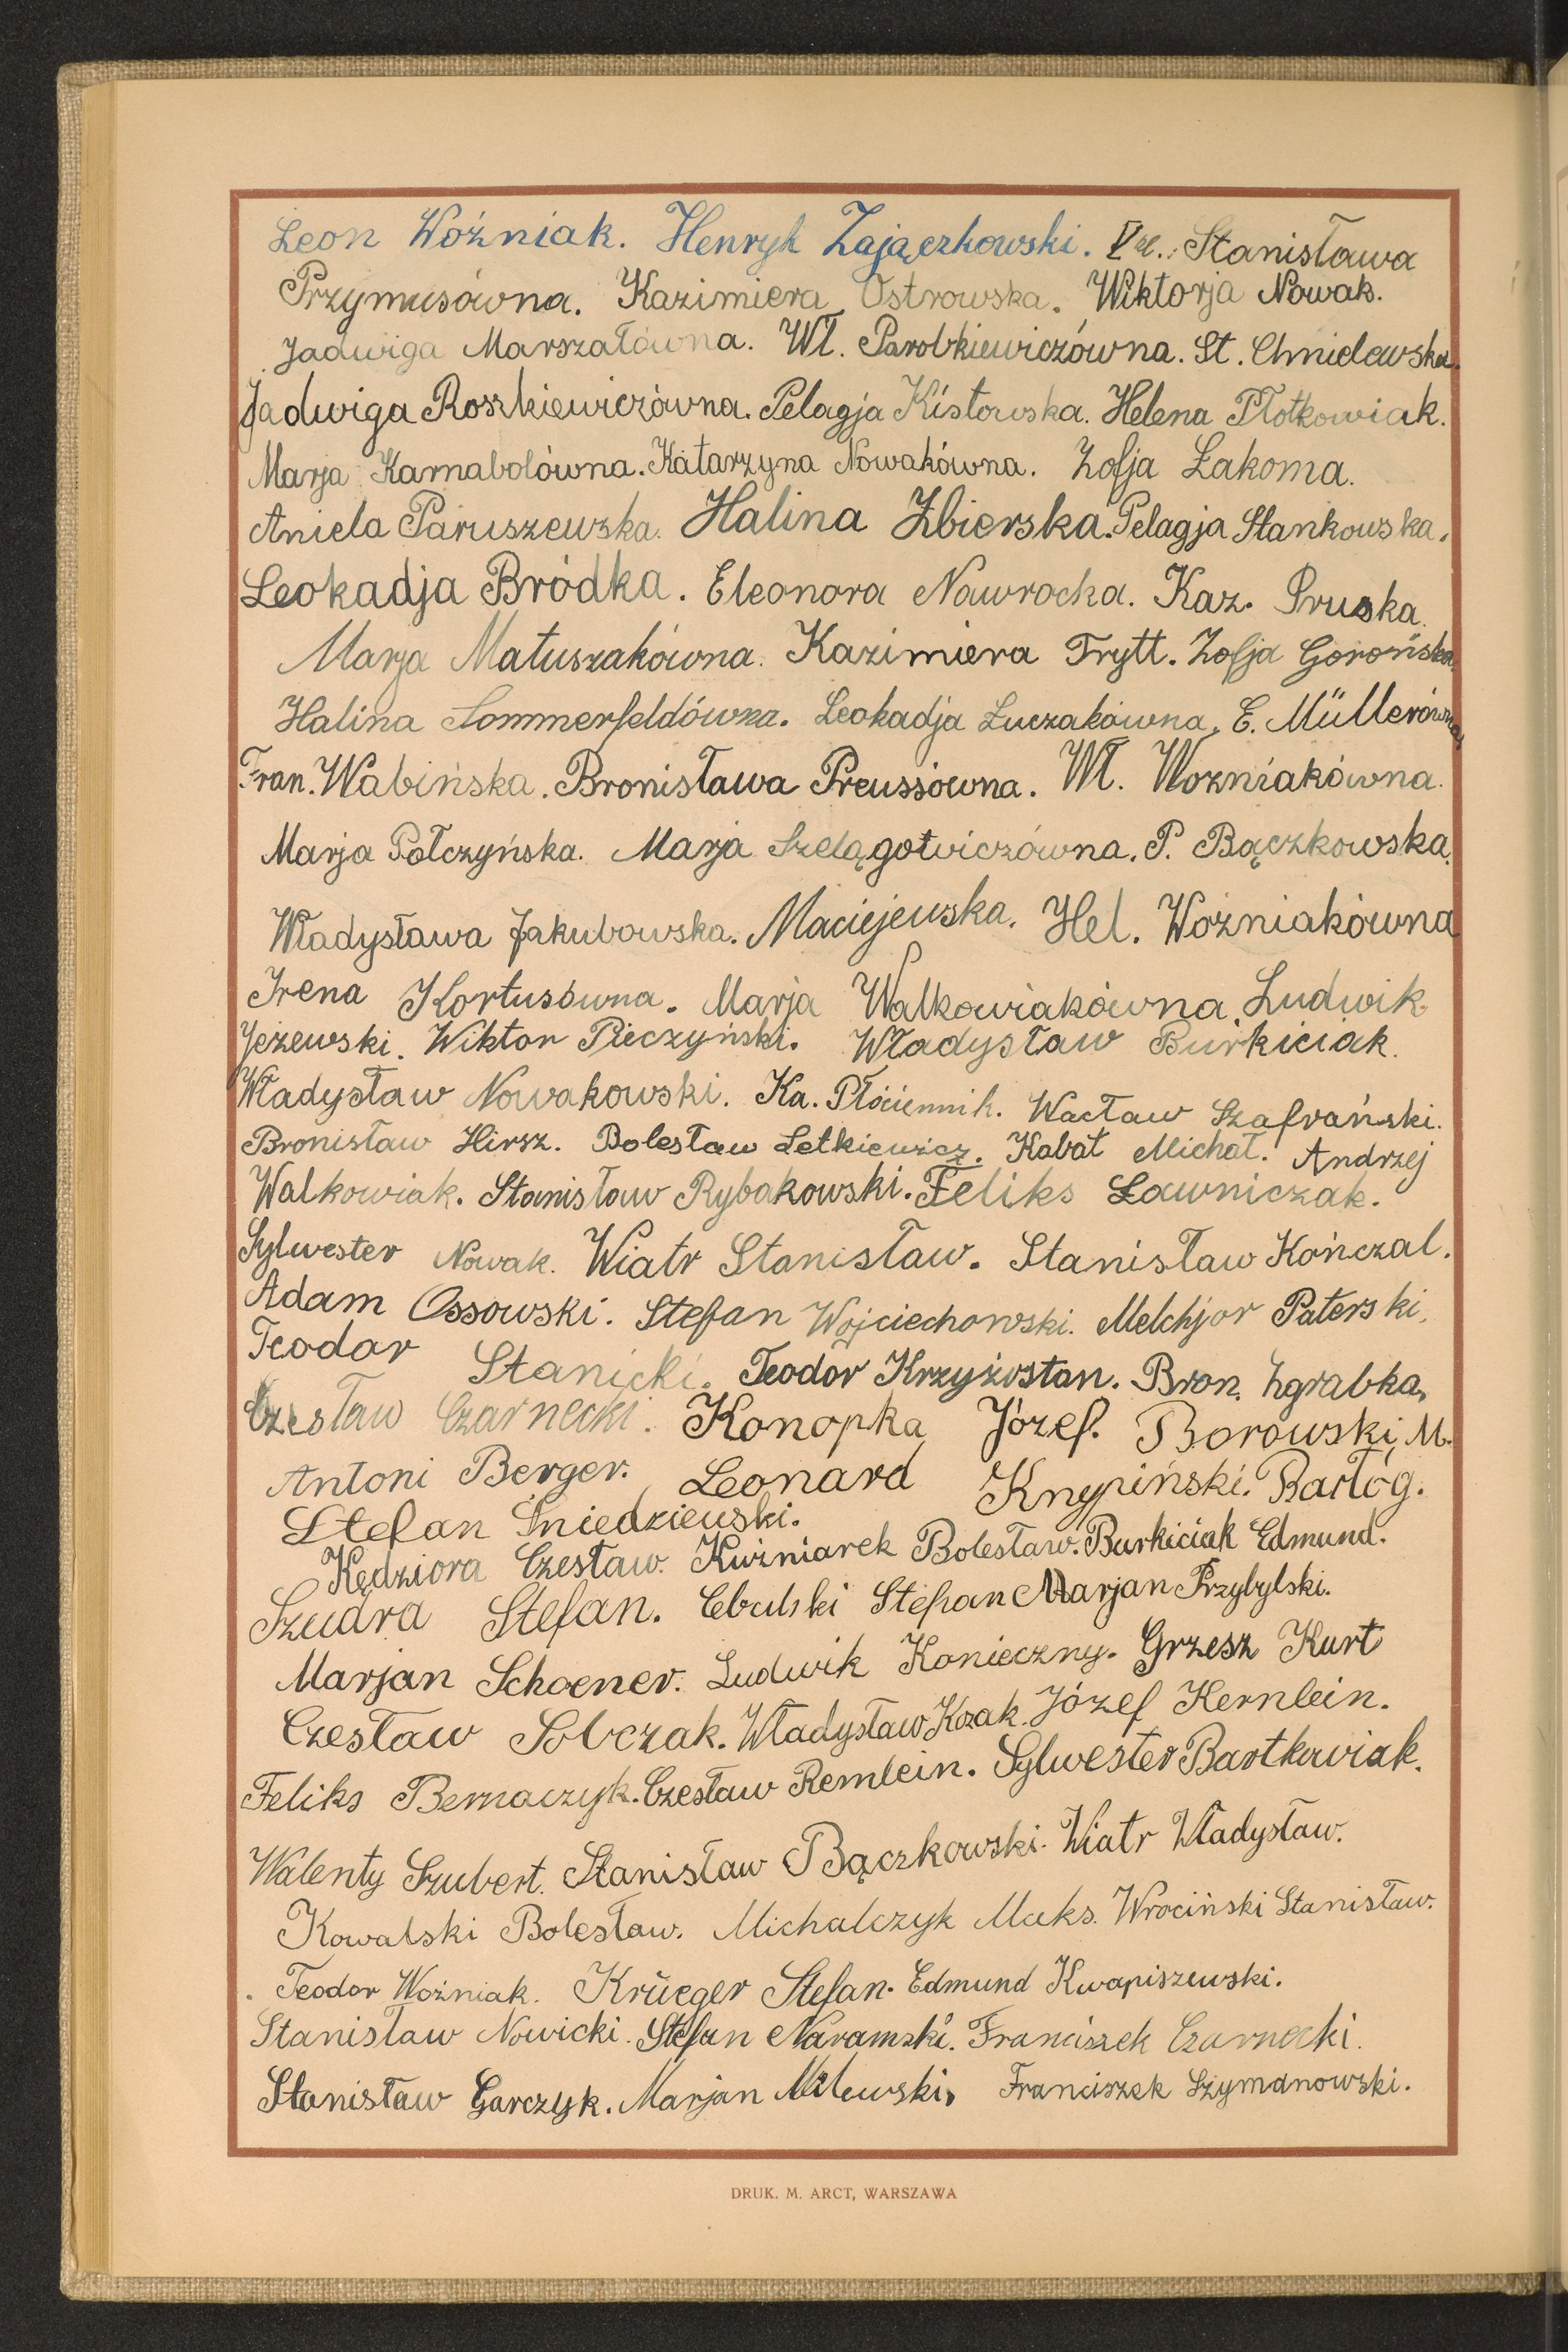 Leon Woźniak. Henryk Zajączkowski. V kl.: Stanisława
Przymusówna. Kazimiera Ostrowska. Wiktorja Nowak.
Jadwiga Marszałówna. Wł. Parobkiewiczówna. St. Chmielewska.
Jadwiga Roszkiewiczówna. Pelagja Kistowska. Helena Płotkowiak.
Marja Karnabolówna. Katarzyna Nowakówna. Zofja Łakoma.
Aniela Paruszewska. Halina Zbierska. Pelagja Stankowska.
Leokadja Bródka. Eleonora Nawrocka. Kaz. Pruska.
Marja Matuszakówna. Kazimiera Frytt. Zofja Gorońska.
Halina Sommerfeldówna. Leokadja Łuczakówna, E. Müllerówna,
Fran. Wabińska. Bronisława Preussówna. Wł. Woźniakówna.
Marja Połczyńska. Marja Szelągowiczówna. P. Bączkowska.
Władysława Jakubowska. Maciejewska. Hel. Woźniakówna
Irena Kortusówna. Marja Walkowiakówna. Ludwik
Jeżewski. Wiktor Pieczyński. Władysław Burkiciak.
Władysław Nowakowski. Ka. Płóciennik. Wacław Szafrański.
Bronisław Hirsz. Bolesław Letkiewicz. Kabat Michał. Andrzej
Walkowiak. Stanisław Rybakowski. Feliks Ławniczak.
Sylwester Nowak. Wiatr Stanisław. Stanisław Kończal.
Adam Ossowski. Stefan Wojciechowski. Melchjor Paterski.
Teodor Stanicki. Teodor Krzyżostan. Bron. Zgrabka,
Czesław Czarnecki. Konopka Józef. Borowski, M.
Antoni Berger. Leonard Knypiński. Bartóg.
Stefan Śniedziewski.
Kędziora Czesław. Kuźniarek Bolesław. Burkiciak Edmund.
Szudra Stefan. Cebulski Stefan Marjan Przybylski.
Marjan Schoener. Ludwik Konieczny. Grzesz Kurt
Czesław Sobczak. Władysław Kozak. Józef Kernlein.
Feliks Bernaczyk. Czesław Remlein. Sylwester Bartkowiak.
Walenty Szubert. Stanisław Bączkowski. Wiatr Władysław.
Kowalski Bolesław. Michalczyk Maks. Wrociński Stanisław.
Teodor Woźniak. Krüeger Stefan. Edmund Kwapiszewski.
Stanisław Nowicki. Stefan Naramski. Franciszek Czarnecki.
Stanisław Garczyk. Marjan Milewski, Franciszek Szymanowski.
DRUK. M. ARCT, WARSZAWA